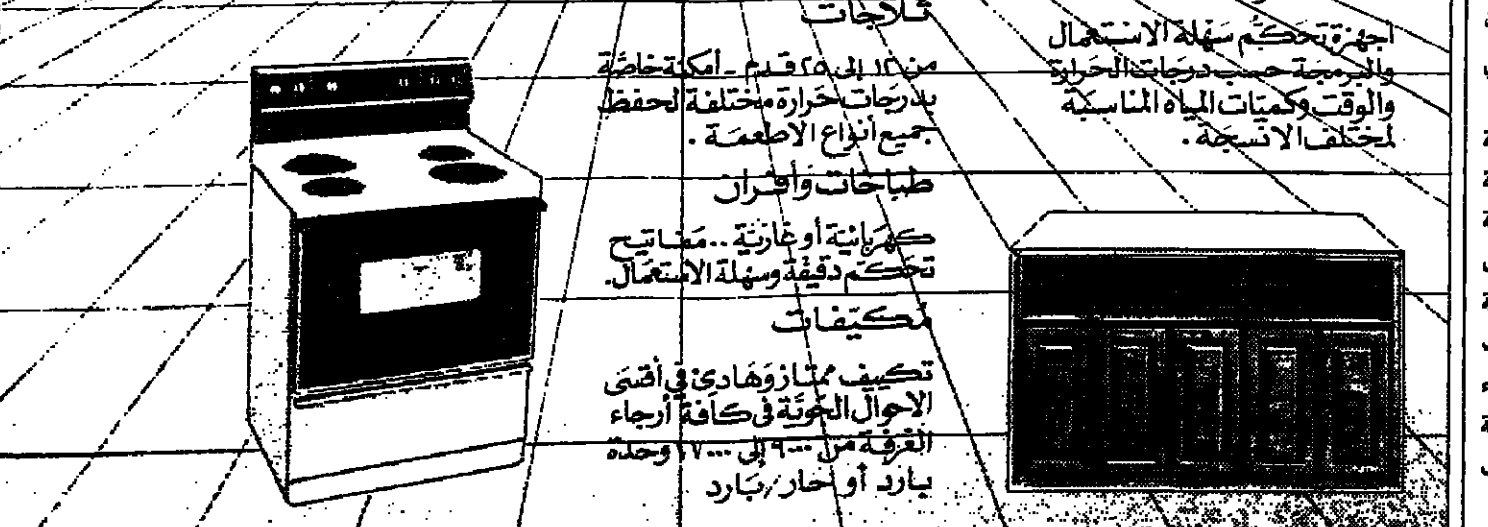 أجهزة تحكّم سهلة الاستعمال
والبرمجة حسب درجات الحرارة
والوقت وكميّات المياه المناسبة
لمختلف الانسجة .
ثلاجات
من ١٢ إلى ٢٥ قدم - أمكنة خاصّة
بدرجات حرارة مختلفة لحفظ
جميع أنواع الاطعمة .
طباخات وأفران
كهربائية أو غازيّة .. مفاتيح
تحكّم دقيقة وسهلة الاستعمال .
مُكيّفات
تكييف ممتاز وهادئ في أقسى
الاحوال الجويّة في كافة أرجاء
الغرفة من ٩٠٠٠ إلى ١٧٠٠٠ وحدة
بارد أو حار/بارد